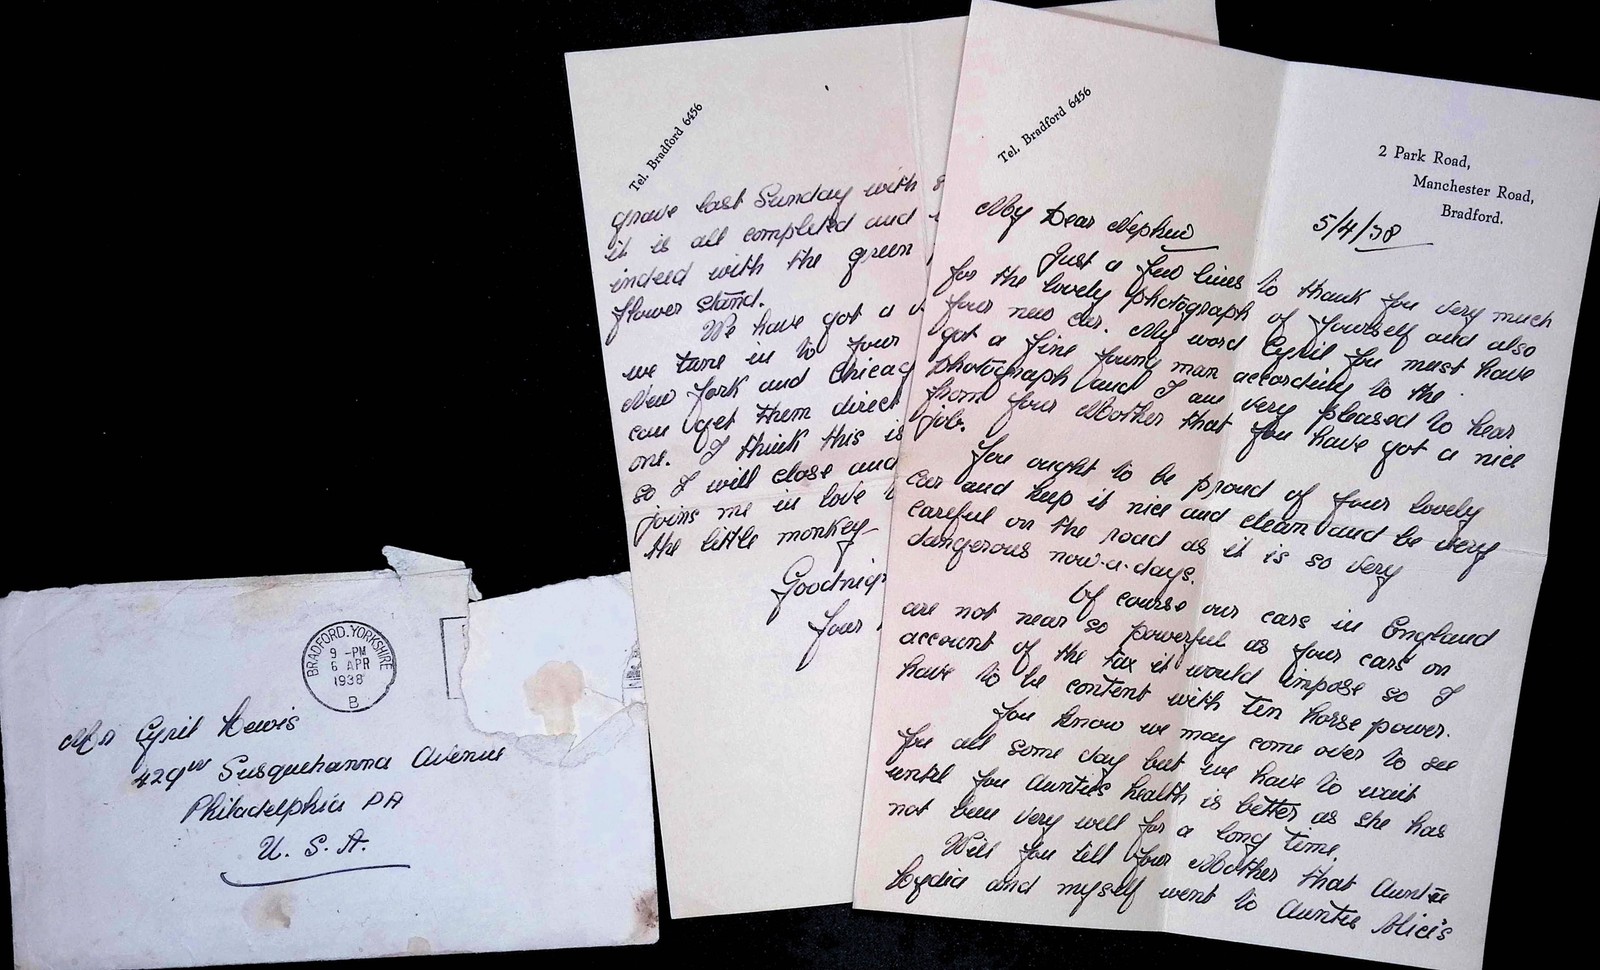 BRADFORD. YORKSHIRE
9 - PM
6 APR
1938
B
Mr Cyril Lewis
429 W Susquehanna Avenue
Philadelphia PA
U. S. A.
Tel. Bradford 6456
2 Park Road,
Manchester Road,
Bradford.
5/4/38
My Dear Nephew
Just a few lines to thank you very much
for the lovely photograph of yourself and also
your new car. My word Cyril you must have
got a fine young man according to the
photograph and I am very pleased to hear
from your Mother that you have got a nice
job.
You ought to be proud of your lovely
car and keep it nice and clean and be very
careful on the road as it is so very
dangerous now-a-days.
Of course our cars in England
are not near so powerful as your cars on
account of the tax it would impose so I
have to be content with ten horse power.
You know we may come over to see
you all some day but we have to wait
until you Aunties health is better as she has
not been very well for a long time.
Will you tell your Mother that Auntie
Lydia and myself went to Auntie Alice's
Tel. Bradford 6456
grave last Sunday with
it is all completed and
indeed with the green
flower stand.
We have got a
we tune in to your
New York and Chicag
can get them direct
one. I think this is
so I will close and
joins me in love
the little monkey
Goodnig
Your